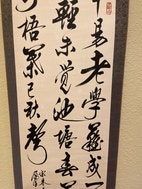 年易老學難成一
輕未覺池塘春
梧葉已秋聲